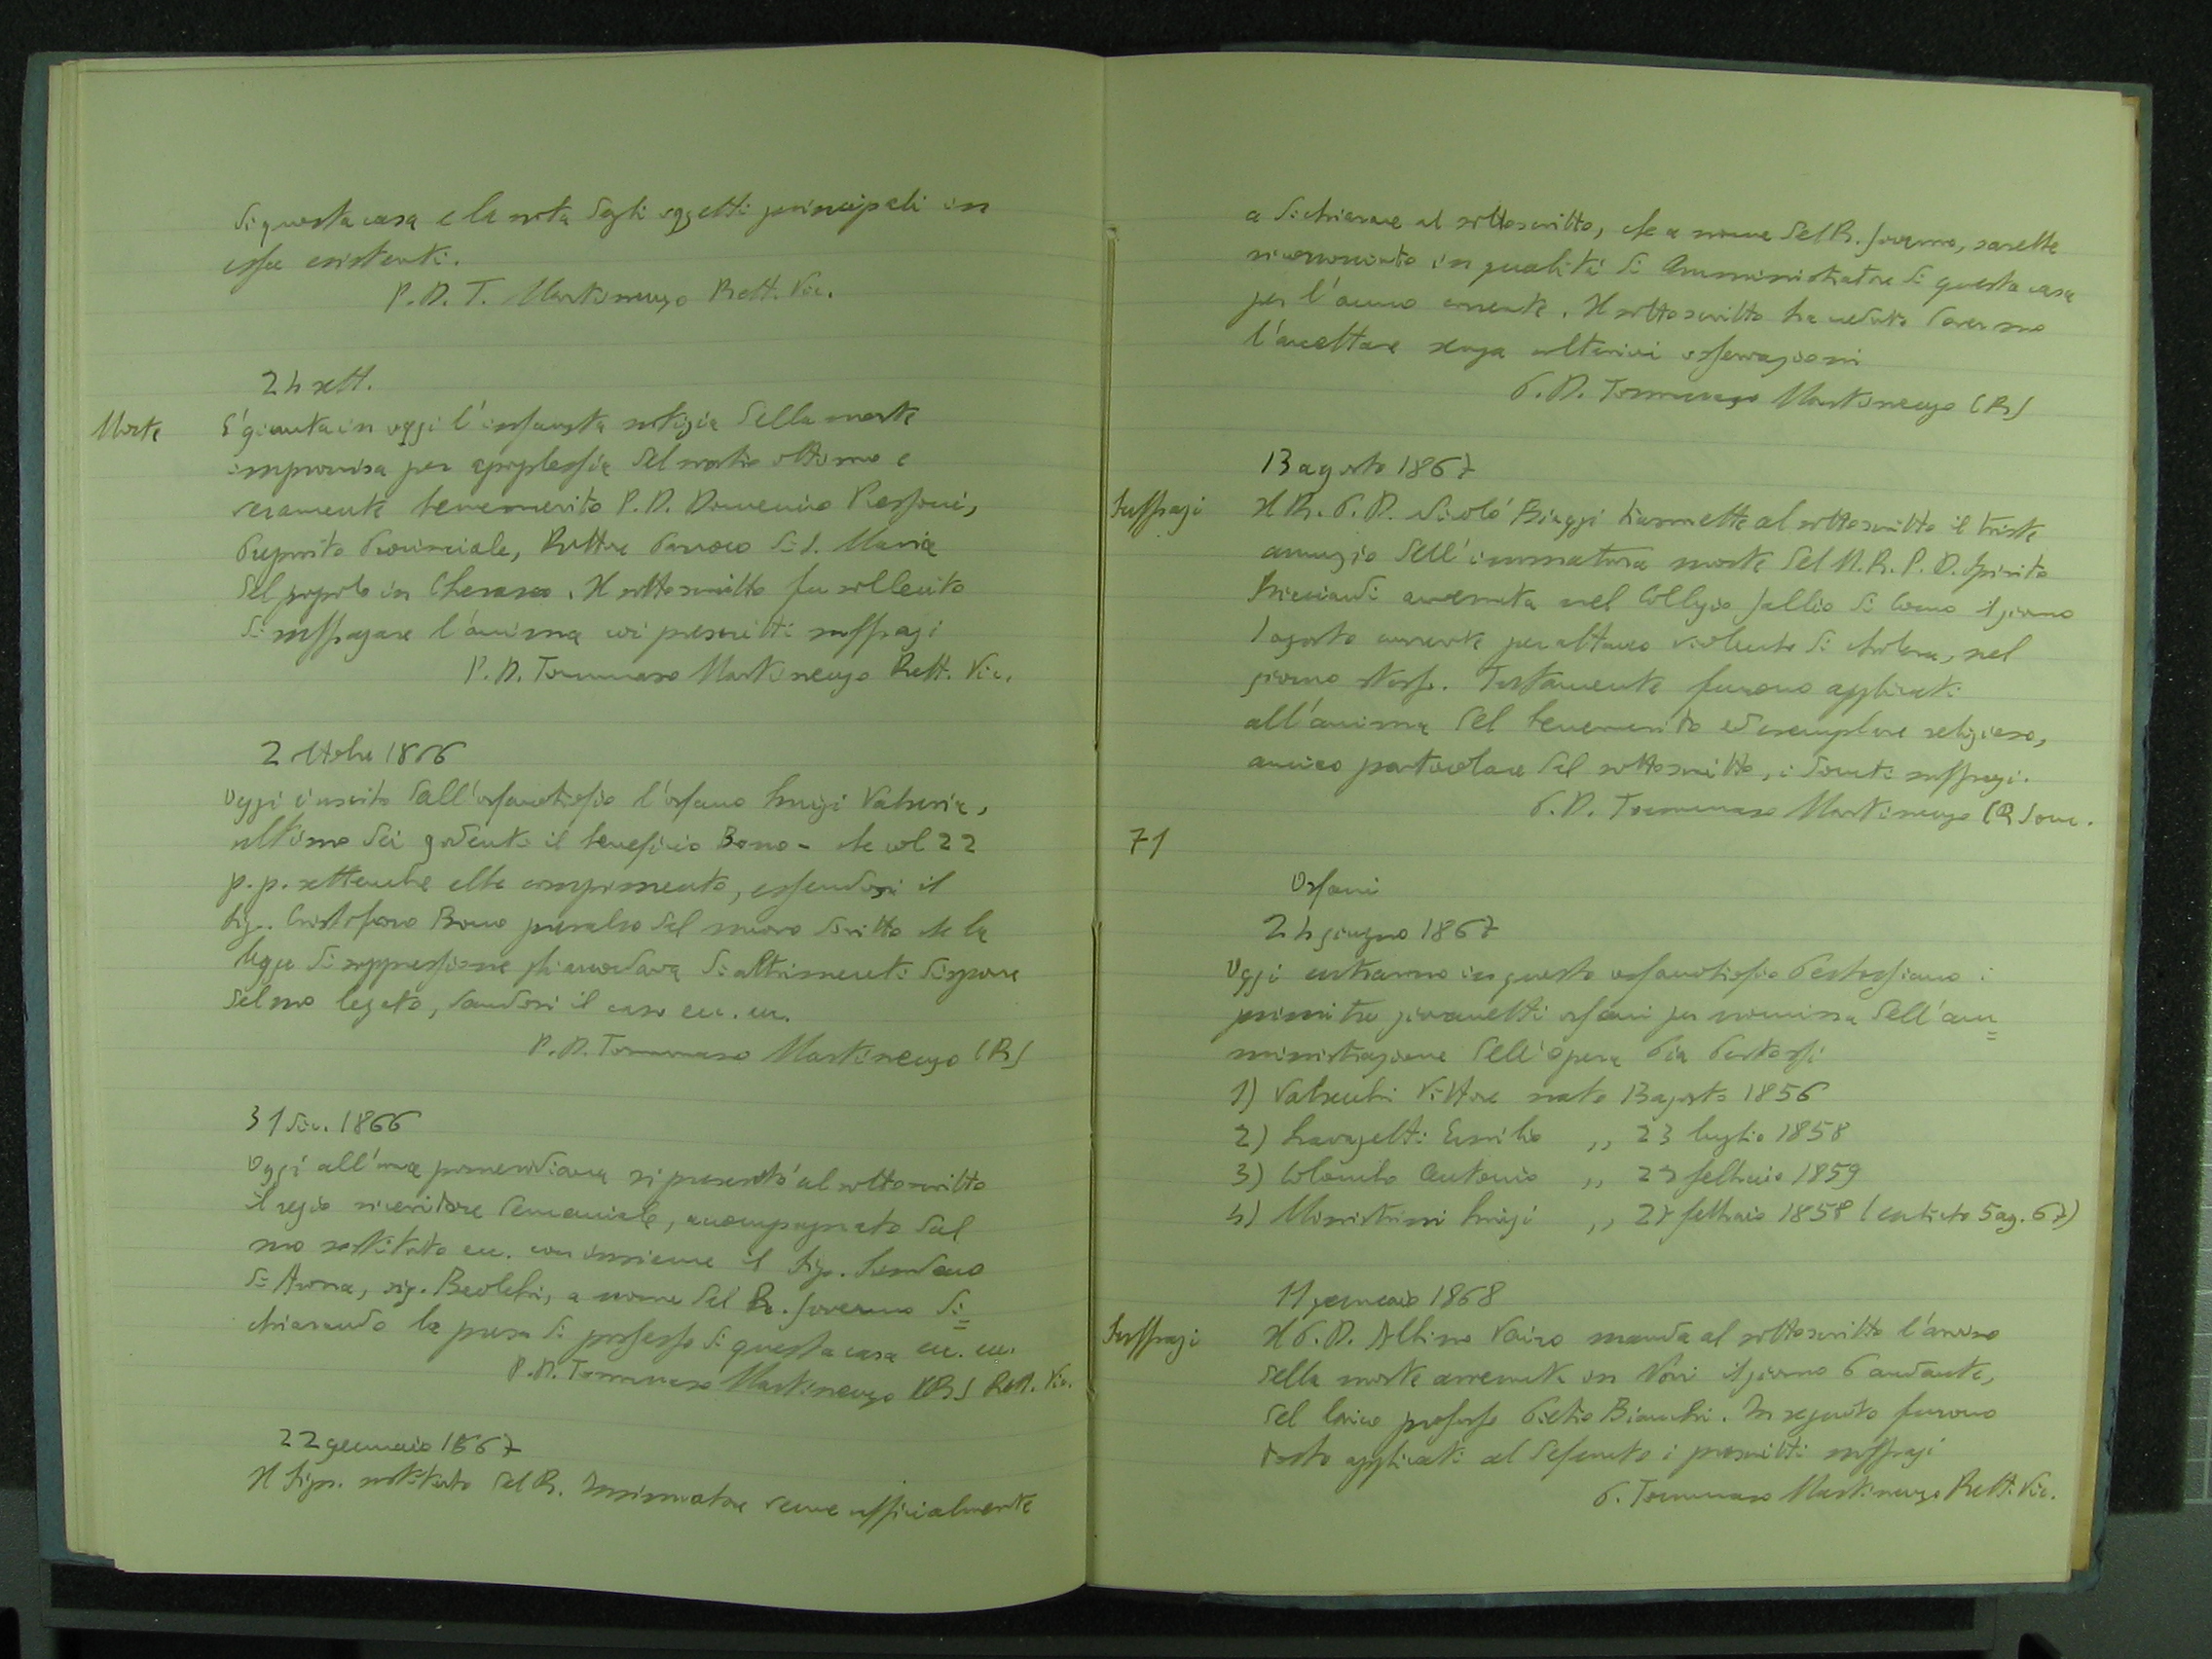 di questa casa e la nota degli oggetti principali in
essa esistenti.
P. D. T. Martinengo Rett. Vic.
24 sett.
Morte
E' giunta in oggi l'infausta notizia della morte
improvvisa per apoplessia del nostro ottimo e
veramente benemerito P. D. Domenico Pressoni,
Preposito Provinciale, Rettore Parroco di S. Maria
del popolo in Cherasco. Il sottoscritto fu sollecito
di suffragare l'anima coi prescritti suffragi
P. D. Tommaso Martinengo Rett. Vic.
2 ottobre 1866
Oggi è uscito dall'orfanotrofio l'orfano Luigi Valseria,
ultimo dei godenti il beneficio Bono - che col 22
p.p. settembre ebbe compimento, essendosi il
Sig. Cristoforo Bono prevalso del nuovo diritto che la
legge di soppressione gli accordava di altrimenti disporre
del suo legato, dandosi il caso ecc. ecc.
P. D. Tommaso Martinengo (R)
31 dic. 1866
Oggi all'una pomeridiana si presentò al sottoscritto
il regio ricevitore demaniale, accompagnato dal
suo sostituto ecc. con insieme il Sig. Sindaco
di Arona, sig. Beolchi, a nome del R. Governo di=
chiarando la presa di possesso di questa casa ecc. ecc.
P. D. Tommaso Martinengo (R) Rett. Vic.
22 gennaio 1867
Il Sign. sostituto del R. Insinuatore venne ufficialmente
a dichiarare al sottoscritto, che a nome del R. Governo, sarebbe
riconosciuto in qualità di Amministratore di questa casa
per l'anno corrente. Il sottoscritto ha creduto dover suo
l'accettare senza ulteriori osservazioni
P. D. Tommaso Martinengo (R)
13 agosto 1867
Suffragi
Il R. P. D. Nicolò Biaggi trasmette al sottoscritto il triste
annuzio dell'immatura morte del M. R. P. D. Spirito
avvenuta nel Collegio Gallio di Como il giorno
1 agosto corrente per attacco violento di cholera, nel
giorno stess. Tostamente furono applicati
all'anima del benemerito ed esemplare religioso,
amico particolare del sottoscritto, i dovuti suffragi.
P. D. Tommaso Martinengo (R)
71
Orfani
24 giugno 1867
Oggi entrarono in questo orfanotrofio Pertossiano i
primi tre giovanetti orfani per nomina dell'am=
ministrazione dell'opera Pia Pertossi
1) Valsecchi Vittore nato 13 agosto 1856
2) Lavazetti Emilio ,, 23 luglio 1858
3) Colombo Antonio ,, 23 febbraio 1859
4) Ministrini Luigi ,, 28 febbraio 1858 (entrato 5 ag. 67)
11 gennaio 1868
Suffragi
Il P. D. Albino Vairo manda al sottoscritto l'avviso
della morte avvenuta in Novi il giorno 6 andante,
del laico professo Pietro Bianchi. In seguito furono
tosto applicati al defunto i prescritti suffragi
P. Tommaso Martinengo Rett. Vic.